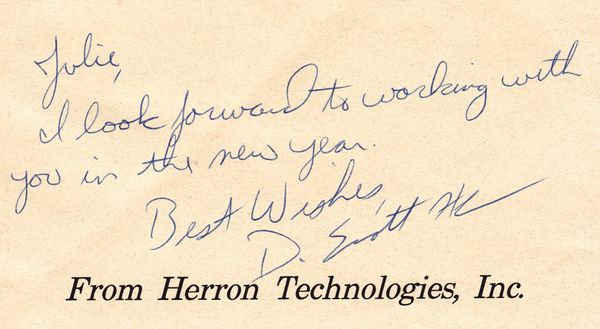 Julie,
I look forward to working with
you in the new year.
Best Wishes,
D. Scott
From Herron Technologies, Inc.